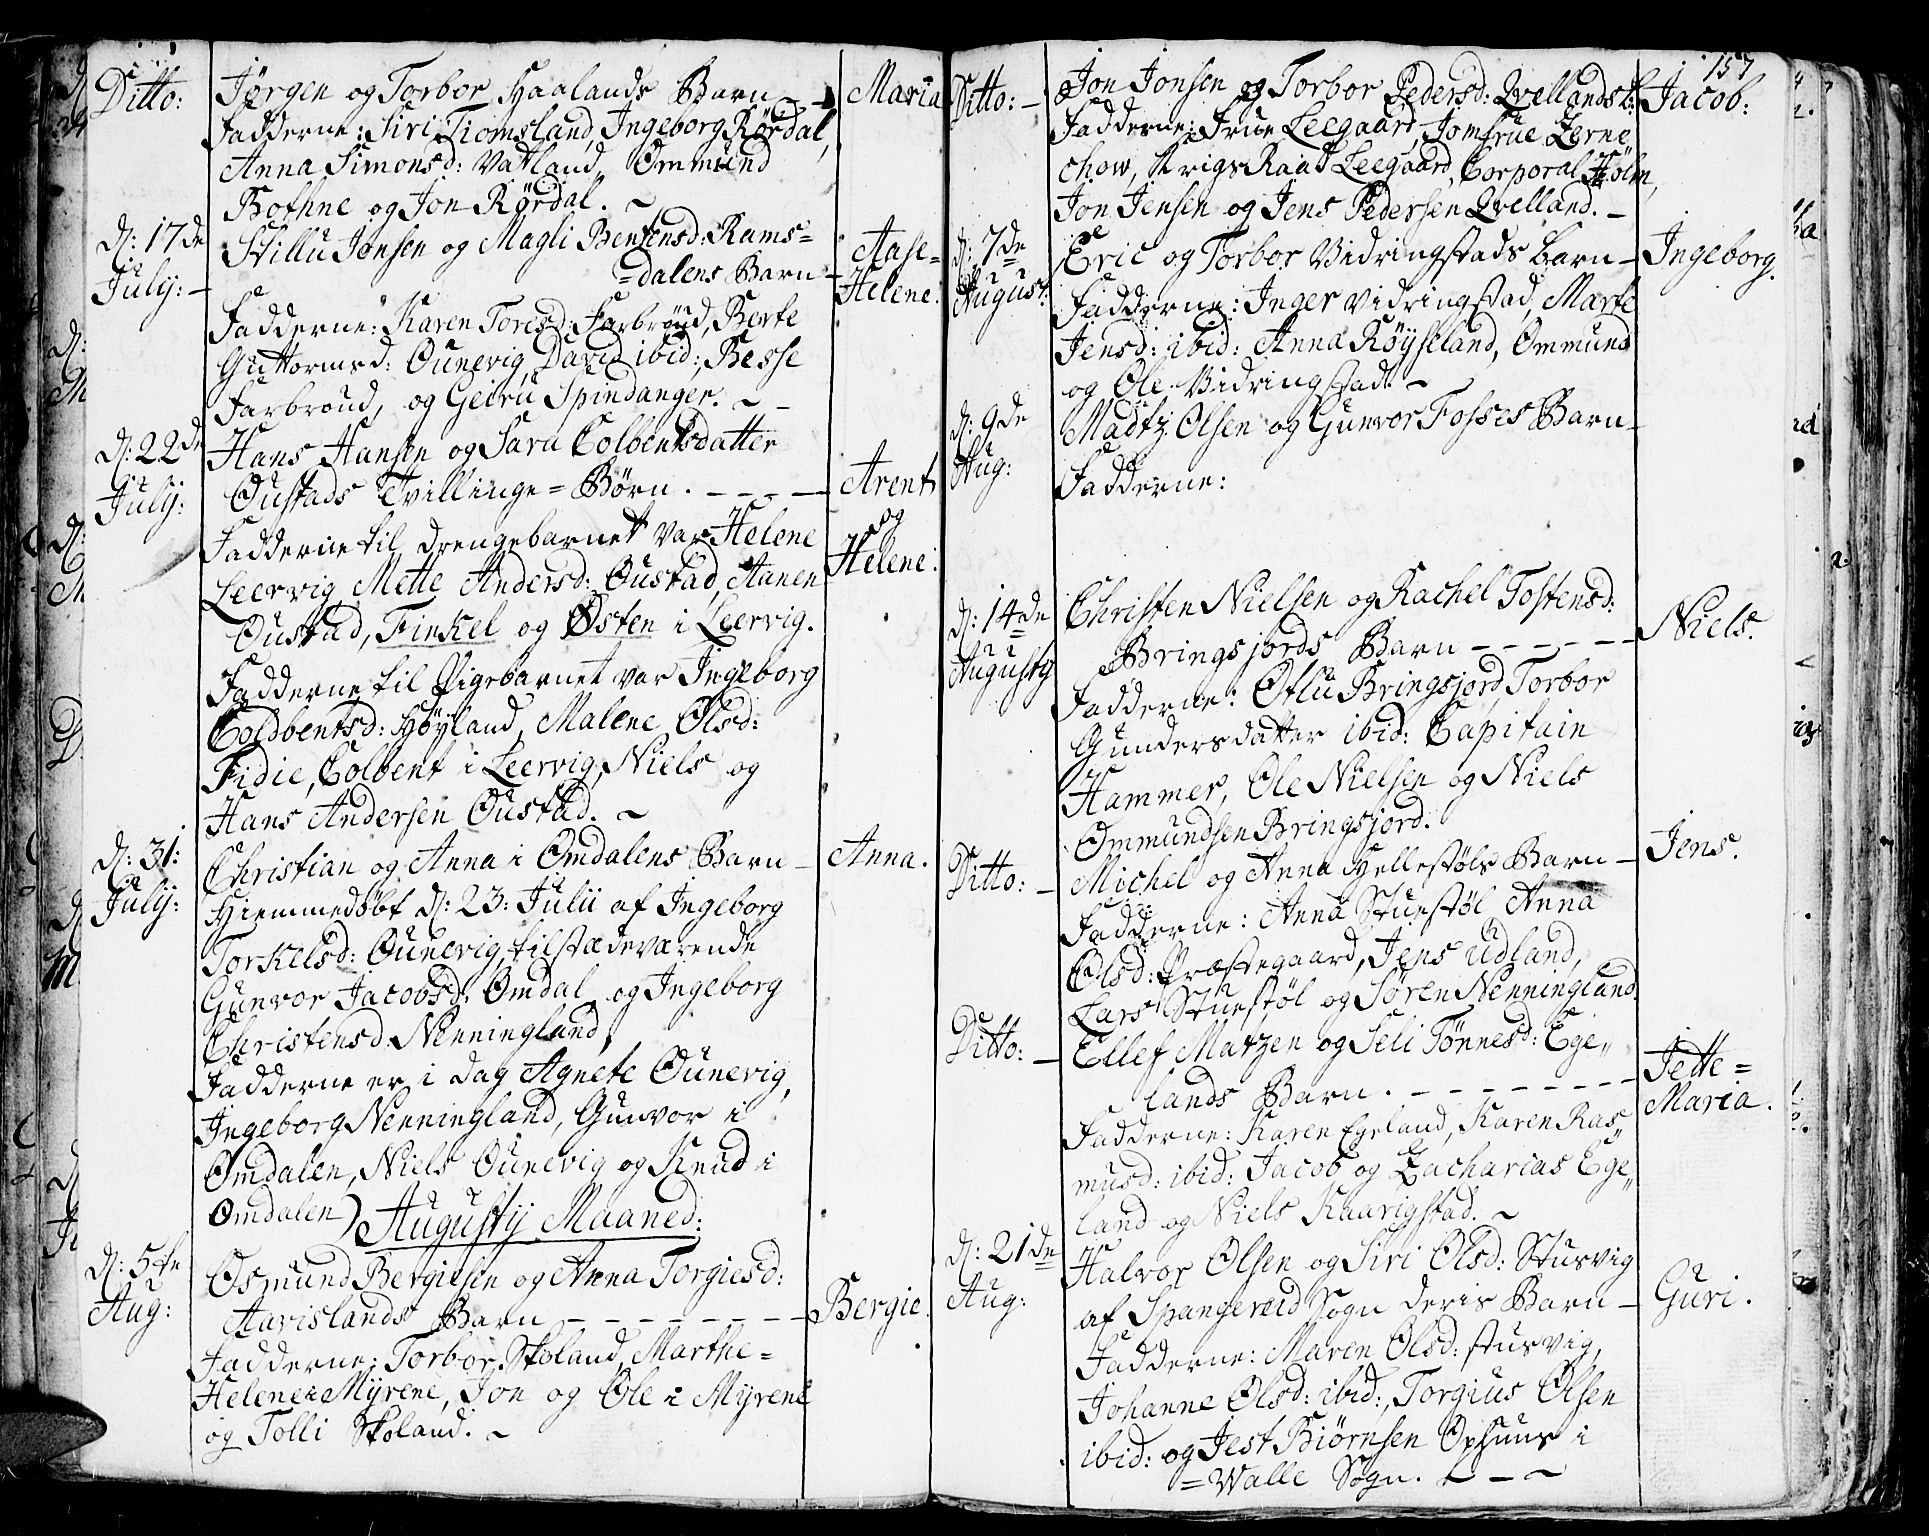 Ditto: Jørgen og Torbor Haalands Barn — Maria
Fadderne: Siri Tiomsland, Ingeborg Rørdal,
Anna Simonsd: Vatland, Ommund
Bothne og Jon Rørdal. ~
d: 17de Villu Jonsen og Magli Bentsensd: Rams=
=dalens Barn — Aase=
July: — Helene:
Fadderne: Karen Toresd: Farbroud, Berte
Guttormsd: Ounevig, David ibid:, Besse
Farbroud, og Geiru Spindanger. ~ –
d: 22de Hans Hansen og Sara Colbentsdatter
July: Oustads Tvillinge=Børn. – – – – Arent
og
Fadderne til Drengebarnet var Helene
Helene:
Leervig, Mette Andersd: Oustad, Aanen
Oustad, Finkel og Østen i Leervig.
Fadderne til Pigebarnet var Ingeborg
Coldbentsd: Høyland, Malene Olsd:
Fidie, Colbent i Leervig, Niels og
Hans Andersen Oustad. ~
d: 31: Christian og Anna i Omdalens Barn – Anna.
July: Hiemmedøbt d: 23: Julii af Ingeborg
Torkelsd: Ounevig, tilstædeværende
Gunvor Jacobsd: Omdal og Ingeborg
Christensd: Nenningland,
Fadderne er i dag Agnete Ounevig,
Ingeborg Nenningland, Gunvor i
Omdalen, Niels Ounevig og Knud i
Omdalen) Augustij Maaned:
d: 5te Osmund Bergiesen og Anna Torgiesd:
Aug: Aavislands Barn – – – – – – – Bergie.
Fadderne: Torbor Skoland, Marthe=
Helene i Myrene, Jon og Ole i Myrene
og Tolli Skoland. ~
157
Ditto: – Jon Jonsen og Torbor Pedersd: Qvellands b: Jacob:
Fadderne: Frue Leegaard, Jomfrue Zerne
chow, KrigsRaad Leegaard, Corporal Holm,
Jon Jensen og Jens Pedersen Qvelland. –
d: 7de Eric og Torbor Vidringstads Barn – Ingeborg.
August: Fadderne: Inger Vidringstad, Marte
Jensd: ibid: Anna Røyseland, Ommund
og Ole Vidringstad. ~
d: 9de Madtz Olsen og Gunvor Fosses Barn –
Aug: Fadderne:
d: 14de Christen Nielsen og Rachel Tostensd:
Augusty Bringsjords Barn – – – – – – Niels.
Fadderne: Otlu Bringsjord, Torbor
Gundersdatter ibid: Capitain
Hammer, Ole Nielsen og Niels
Ommundsen Bringsjord.
Ditto: – Michel og Anna Hellestøls Barn – Jens.
Fadderne: Anna Stuestøl Anna
Olsd: Præstegaard, Jens Udland,
Lars Stuestøl og Søren Nenningland.
Ditto: – Ellef Matzen og Seli Tønnesd: Ege„
lands Barn. – – – – – – – – – Jette=
Maria.
Fadderne: Karen Egeland, Karen Ras„
musd: ibid: Jacob og Zacharias Ege„
land og Niels Kaarigstad. ~
d: 21de Halvor Olsen og Siri Olsd: Stusvig
Aug: af Spangereid Sogn deris Barn – Guri.
Fadderne: Maren Olsd: stusvig,
Johanne Olsd: ibid:, Torgius Olsen
ibid: og Jest Biørnsen Ophuus i
=Walle Sogn. ~ – ~